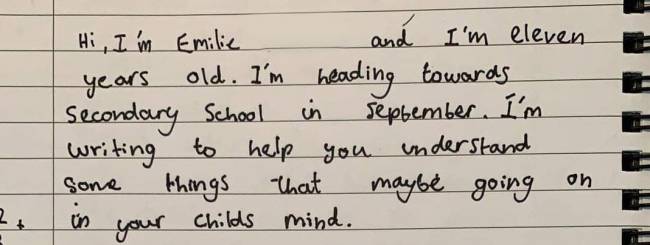 Hi, I'm Emilie and I'm eleven
years old. I'm heading towards
Secondary School in September. I'm
writing to help you understand
some things that maybe going on
in your childs mind.